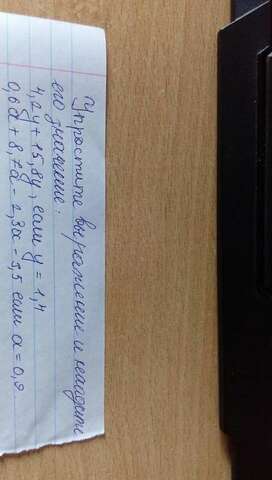 Упростите выражение и найдите
его значение:
4,2y + 15,8y, если y = 1,4
0,6a + 8,7a - 2,3a - 3,5 если a = 0,9